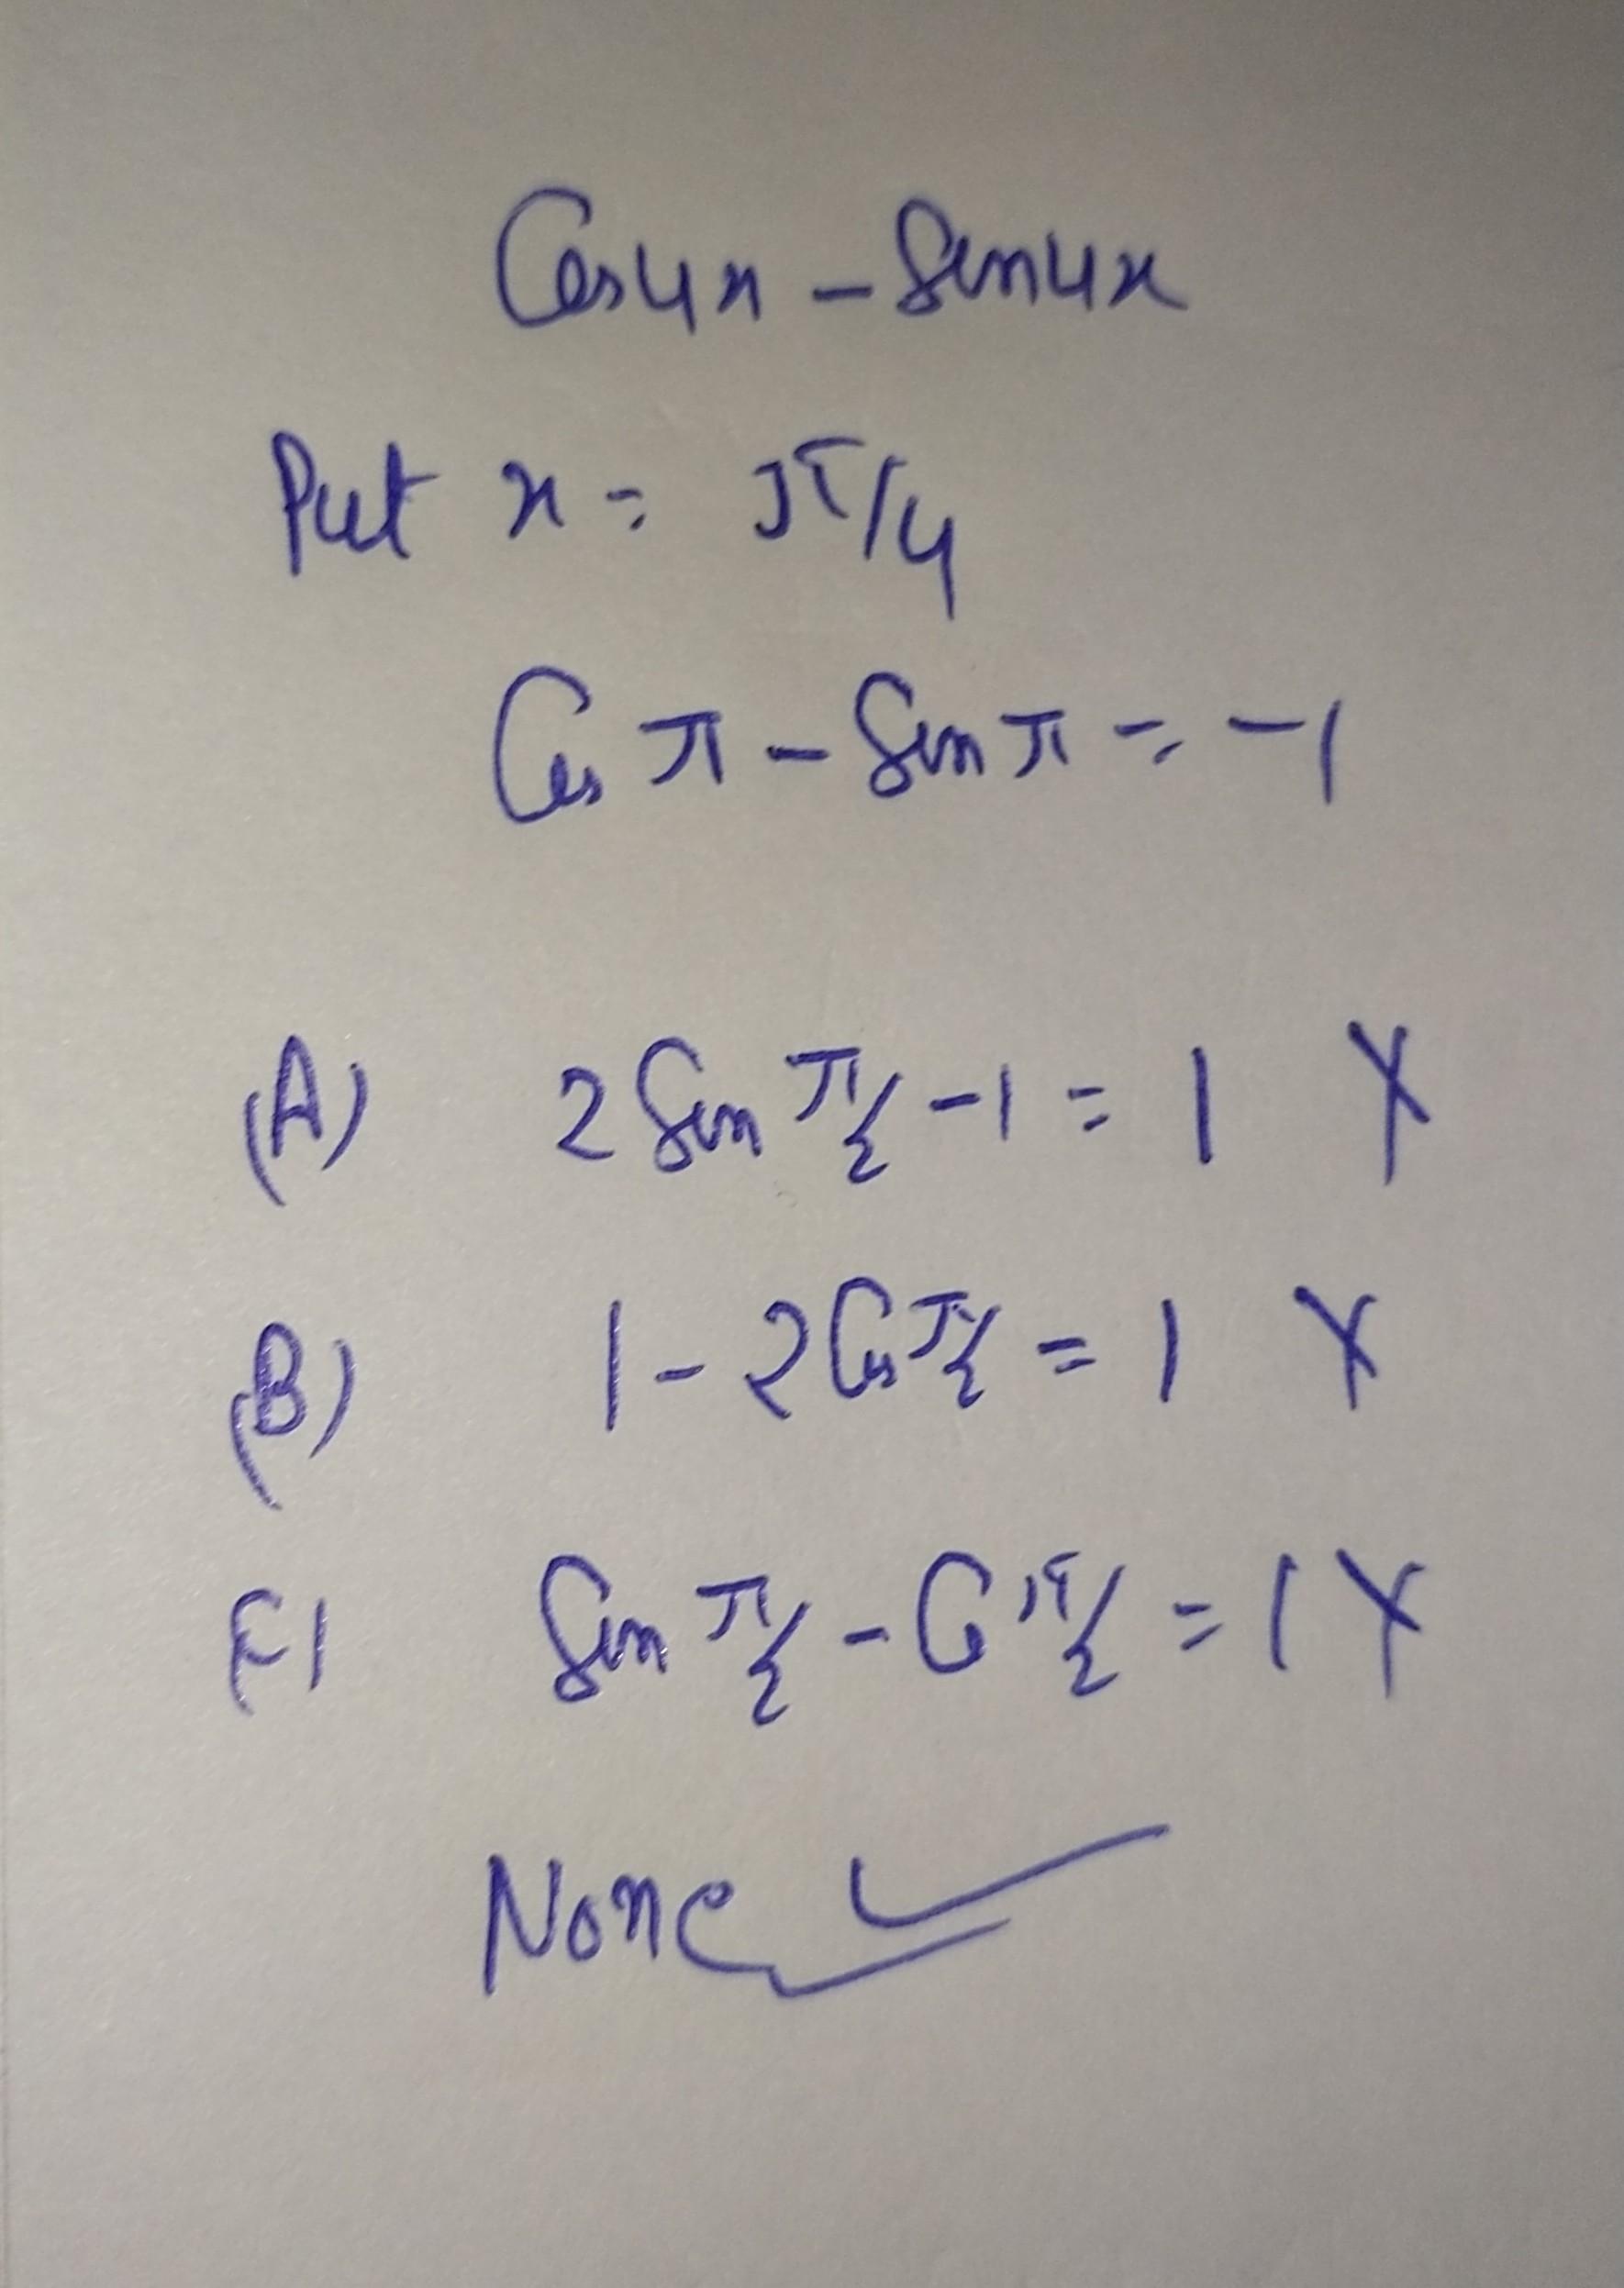 Cos4x - Sin4x
Put x = π/4
Cos π - Sin π = -1
(A) 2 Sin π/2 - 1 = 1 X
(B) 1 - 2 Cos π/2 = 1 X
Sin π/2 - Cos π/2 = 1 X
None ✓